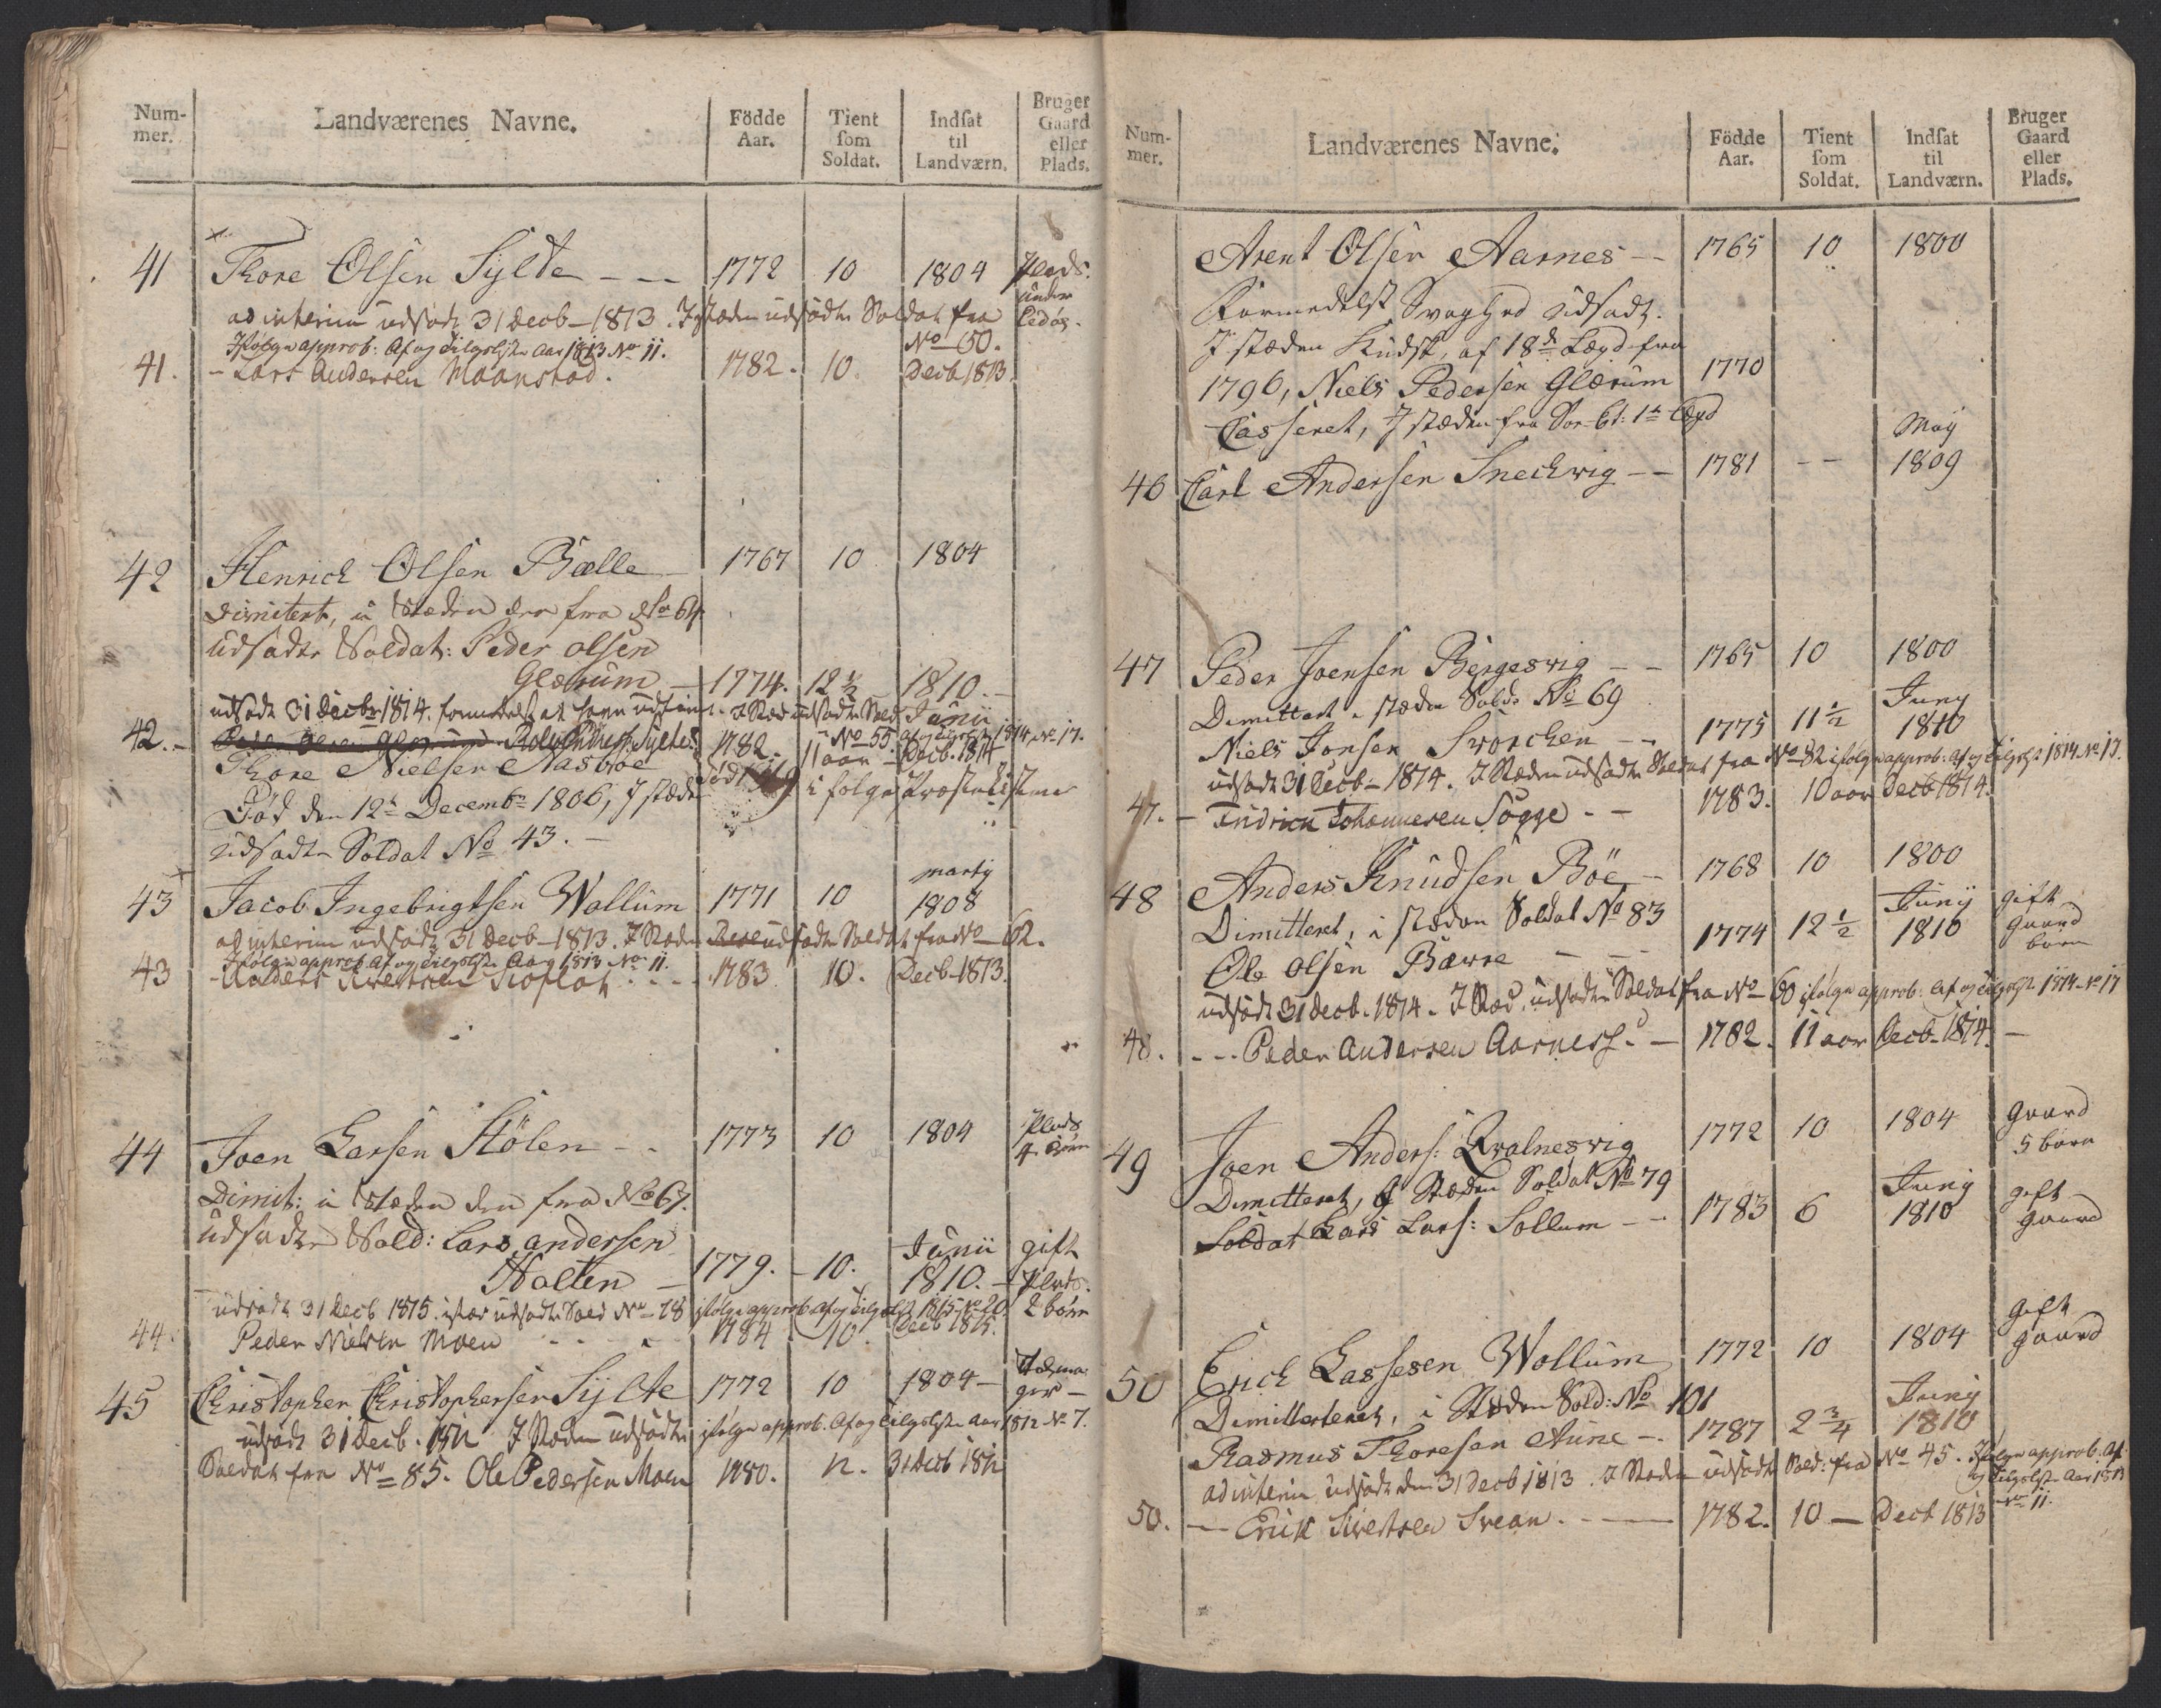 Num-
mer.
Landværenes Navne.
Födde
Aar.
Tient
som
Soldat.
Indsat
til
Landværn.
Bruger
Gaard
eller
Plads.
41 Thore Olsen Sylte - - - 1772 10 1804 Plads
under
ad interim udsadt 31 Decb 1813. I stæden udsadte Soldat fra
No 60.
Ifølge approb: Af og Tilgslste Aar 1813 No 11.
41. - Lars Andersen Maanstad. 1782. 10. Decb 1813
42 Henrich Olsen Bælle 1767 10 1804
Dimitert, i Stæden den fra No 64
udsadte Soldat: Peder Olsen
Glærum - 1774. 12 1/2 1810. -
Junii
udsadt 31 Decbr 1814. formedelst at have udtient. I Stæd udsadte Sold
No 55 Af og Tilgslst 1814, No 17.
42. - 1782. 11 aar - Decb. 1814
Thore Nielsen Nasbøe
Fød den 12te Decembr 1806, I stæden
udsadte Soldat No 43. -
marty
43 Jacob Ingebrigtsen Wollum 1771 10 1808
ad interim udsadt 31 Decb 1813. I Stæden udsadte Soldat fra No 62.
Ifølge approb. Af og Tilgslste Aar 1813 No 11.
43 - Anders Sivertsen 1783 10. Decb 1813.
44 Joen Larsen Stölen - - 1773 10 1804 Plads
4 Børn
Dimit: i Stæden den fra No 67.
udsadte Sold: Lars Andersen
Junii gift
Holten - 1779. - 10. 1810. - Plads.
2 børn
udsadt 31 Decb 1815. istæd udsadte Sold No 78 ifølge approb Af og Tilgslst 1815 No 20
44. Peder Nielsen Moen 1784 10. Decb 1815.
45 Christopher Christophersen Sylte 1772 10 1804 -
udsadt 31 Decb. 1812 I Stæden udsadte ifølge approb. Af og Tilgslste Aar 1812 No 7.
Soldat fra No 85. Ole Pedersen Moen 1780. 12. 31 Decb 1812
Num-
mer.
Landværenes Navne.
Födde
Aar.
Tient
som
Soldat.
Indsat
til
Landværn.
Bruger
Gaard
eller
Plads.
Arent Olsen Aarnes - - 1765 10 1800
Formedelst Svaghed udsadt.
I stæden Kudsk, af 18de Lægd fra
1796, Niels Pedersen Glærum 1770
Casseret, I stæden fra Sor 61: 1te Lægd
May
46 Carl Andersen Snechvig - - 1781 - - 1809
47 Peder Joensen Bergesvig - - 1765 10 1800
Dimittert i stæden Sold: No 69
Juny
Niels Jonsen Svorchen - - 1775 11 1/2 1810
udsadt 31 Decb 1814. I Stæden udsadte Soldat fra No 82 ifølge approb. Af og Tilgslst 1814 No 17.
47. - Endrich Johannesen Sogge - - 1783. 10 aar Decb 1814.
48 Anders Knudsen Böe - 1768 10 1800
Dimitteret, i stæden Soldat No 83
Juny gift
gaard
Ole Olsen Bæwre - - 1774 12 1/2 1810 børn
udsadt 31 Decb. 1814. I Stæd. udsadte Soldat fra No 60 ifølge approb: Af og Tilgslst 1814 No 17
48. - - - Peder Andersen Aarness. - 1782. 11 aar Decb 1814. -
49 Joen Anders: Qvalnesvig 1772 10 1804 gaard
5 børn
Dimitteret, I Stæden Soldat No 79
Juny gift
Soldat Lars Lars: Sollum - - 1783 6 1810 gaard
gift
50 Erich Lassesen Wollum 1772 10 1804 gaard
Dimitterteret, i Stæden Sold: No 101
Juny
Rasmus Thoresen Aune - 1787 2 3/4 1810
ad interim udsadt den 31 Decb 1813. I Stæden udsadte Sold: fra No 45. Ifølge approb. Af
og Tilgslste Aar 1813
No 11.
50. - Erik Sivertsen Svean. - 1782. 10 - Decb 1813